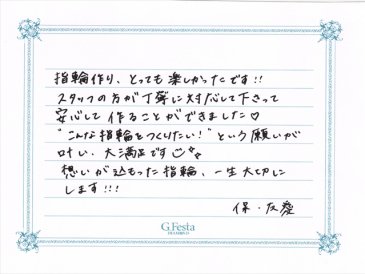 指輪作り、とっても楽しかったです!!
スタッフの方が丁寧に対応して下さって
安心して作ることができました♡
"こんな指輪をつくりたい!"という願いが
叶い、大満足です
想いが込もった指輪、一生大切に
します!!!
保・友愛
G.Festa